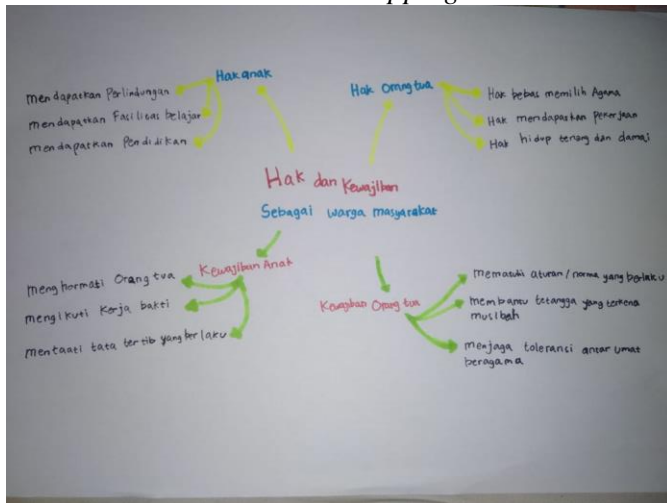 Hak anak
mendapatkan Perlindungan
mendapatkan Fasilitas belajar
mendapatkan Pendidikan
Hak Orang tua
Hak bebas memilih Agama
Hak mendapatkan Pekerjaan
Hak hidup tenang dan damai
Hak dan Kewajiban
Sebagai warga masyarakat
Kewajiban Anak
menghormati Orang tua
mengikuti Kerja bakti
mentaati tata tertib yang berlaku
Kewajiban Orang tua
mematuhi aturan/norma yang berlaku
membantu tetangga yang terkena
musibah
menjaga toleransi antar umat
beragama